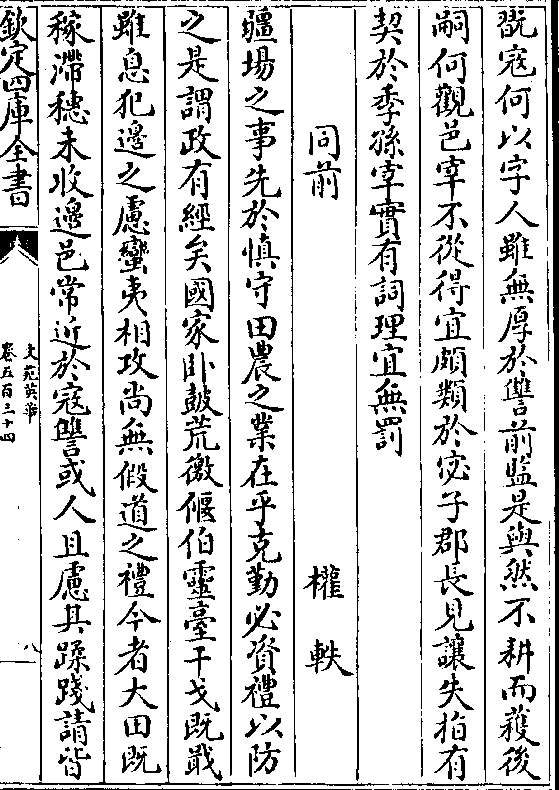 翫寇何以字人雖無厚於讐前監是與然不耕而穫後
嗣何觀邑宰不從得宜頗類於宓子郡長見讓失指有
契於季孫宰實有詞理宜無罰
同前 權軼
疆場之事先於慎守田農之業在乎克勤必資禮以防
之是謂政有經矣國家卧鼓荒徼偃伯靈臺干戈既戢
雖息犯邊之慮蠻夷相攻尚無假道之禮今者大田既
稼滯穗未收邊邑常近於寇讐或人且慮其蹂踐請皆
欽定四庫全書
文苑英華
卷五百三十四
八